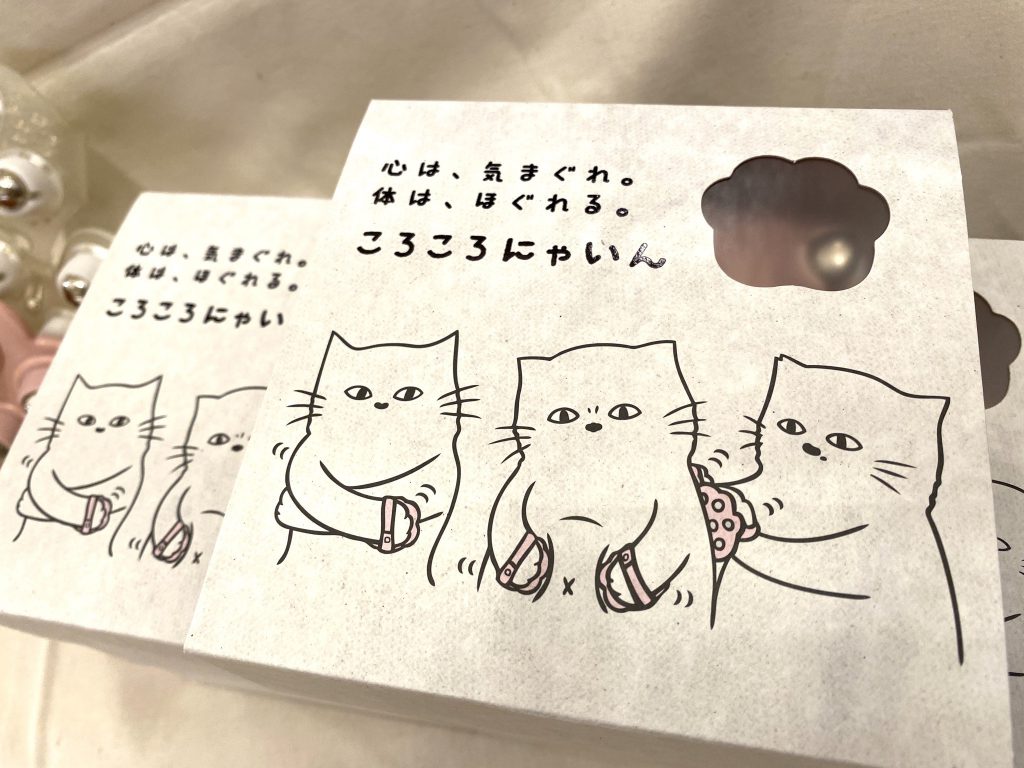 心は、気まぐれ。
体は、ほぐれる。
ころころにゃいん
心は、気まぐれ。
体は、ほぐれる。
ころころにゃい